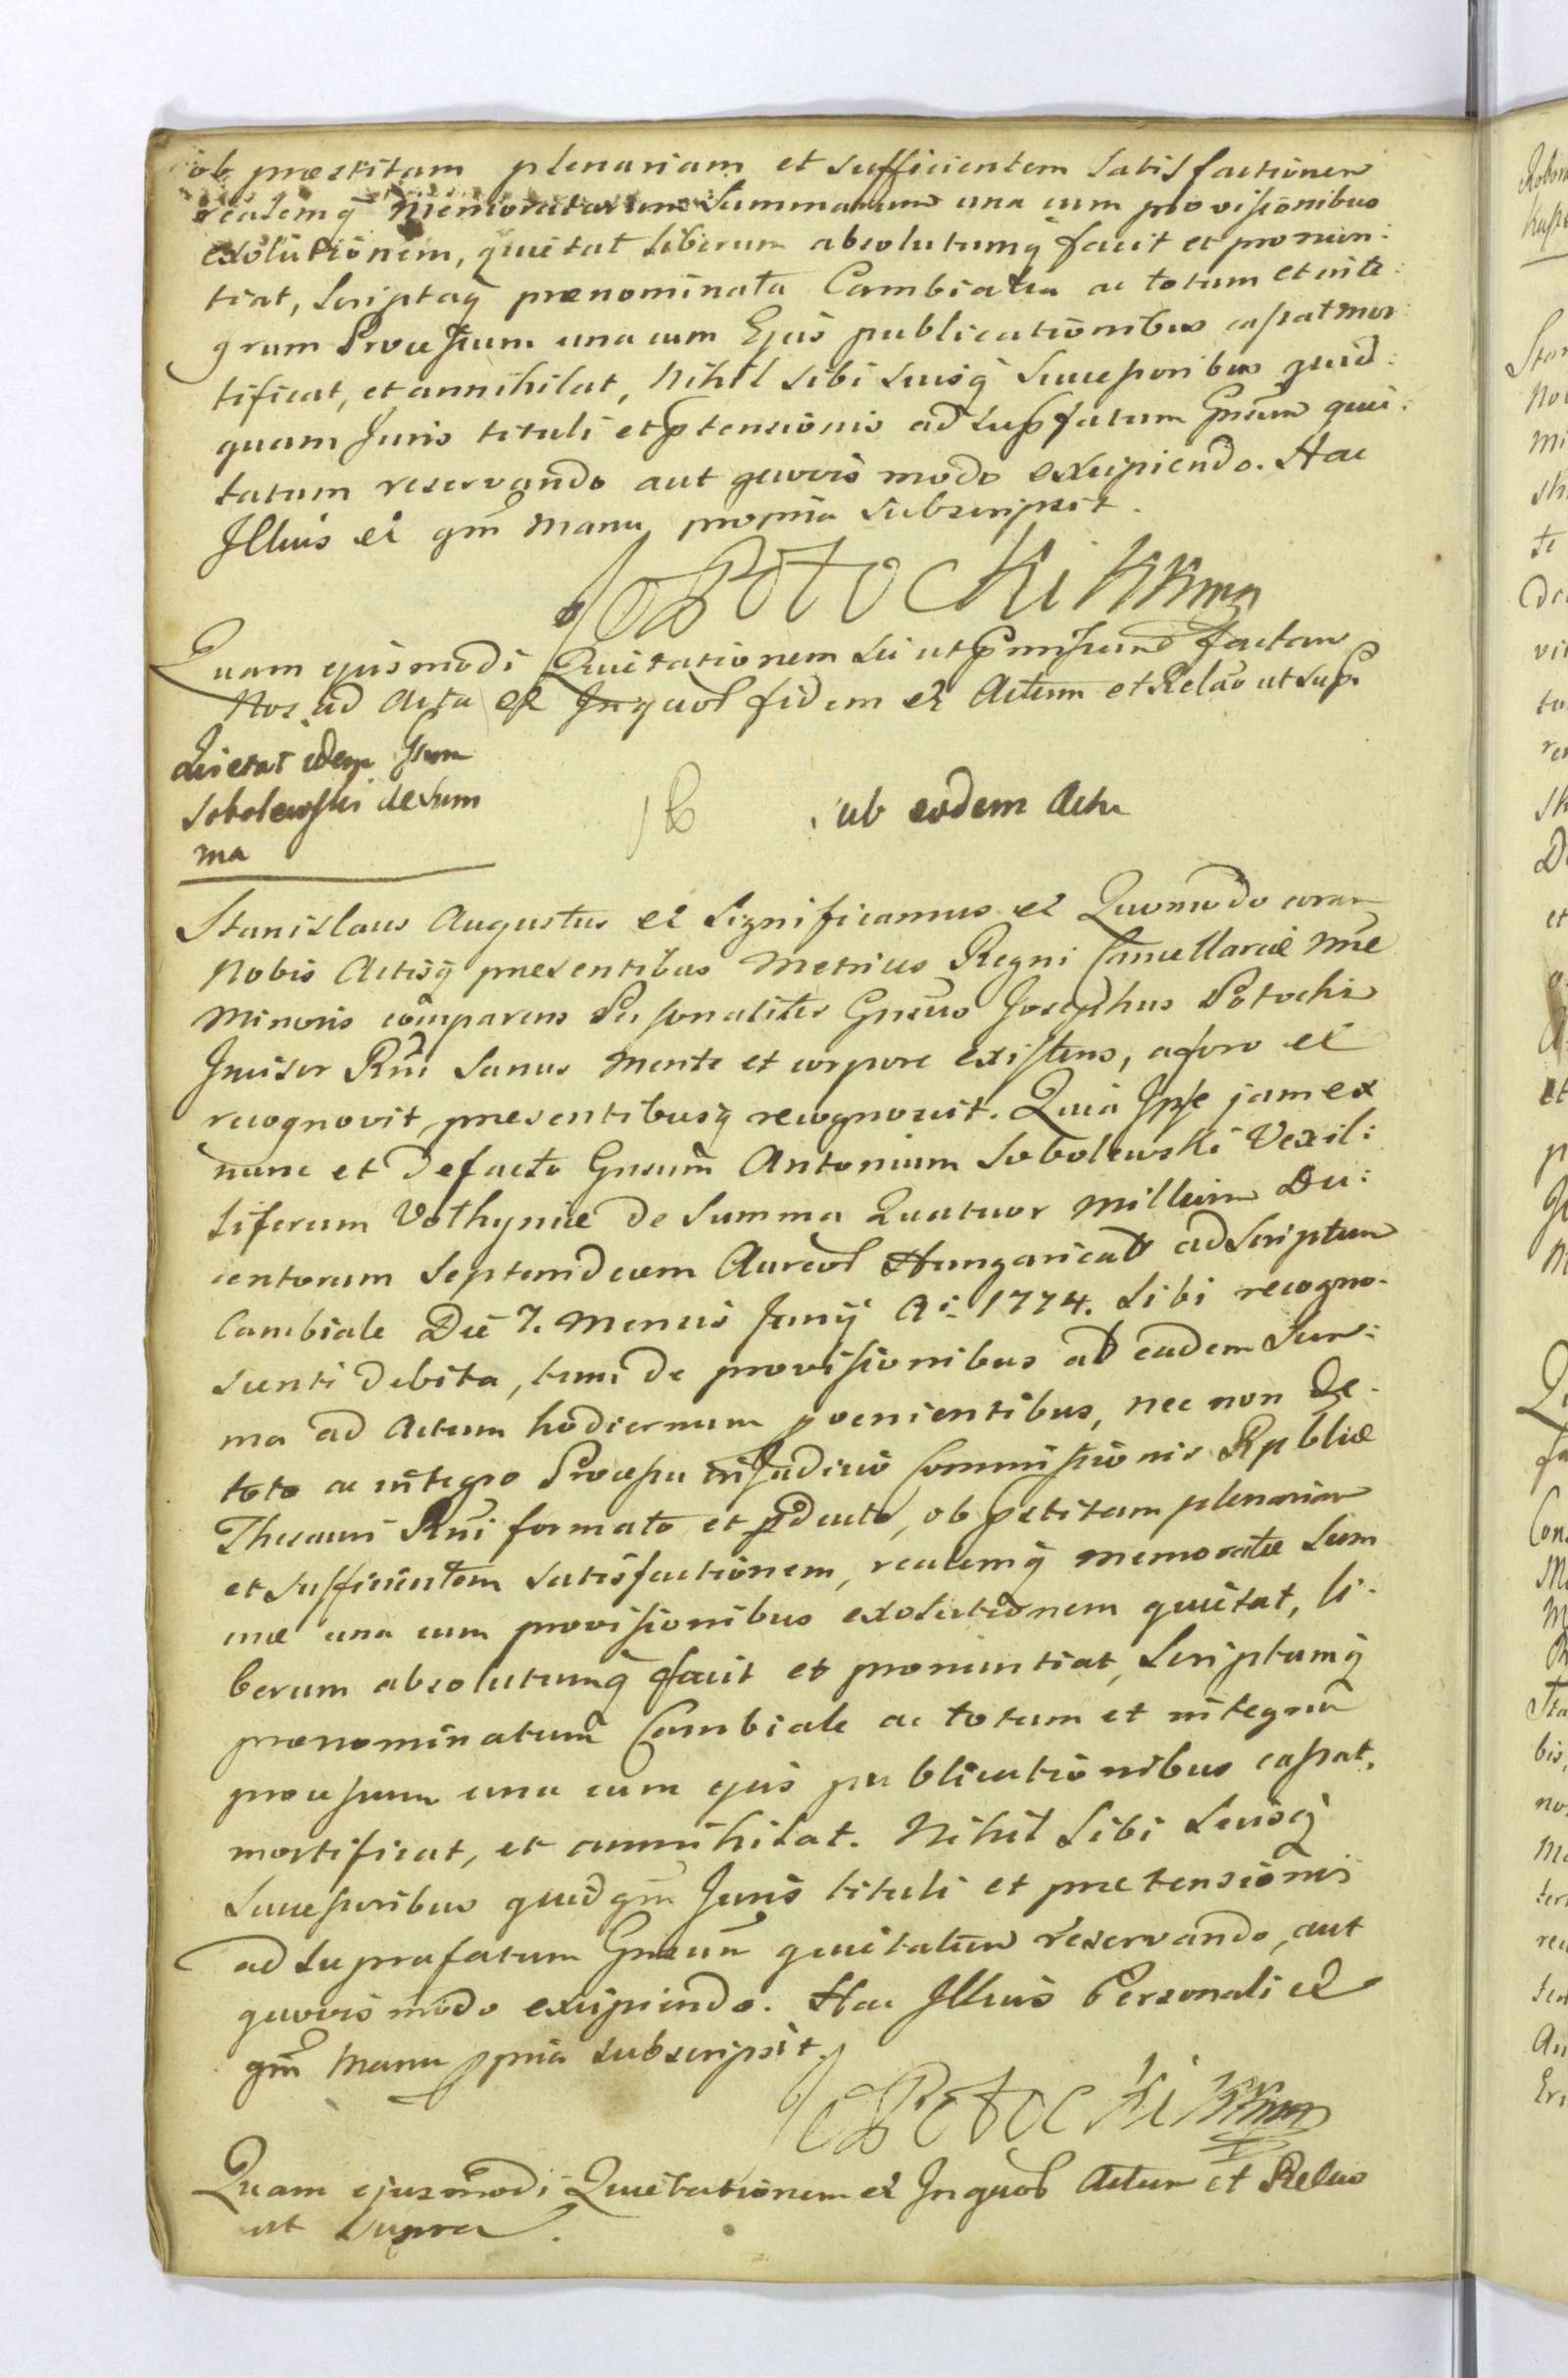 ob præstitam plenariam et sufficientem Satisfactionem
realemq̃ Memoratarum Summarum una cum provisionibus
exolutionem, quietat liberum absolutumq̃ facit et pronun:
tiat, Scriptaq̃ prænominata Cambialia ac totum et inte:
grum Processum una cum Ejus publicationibus cassat mor:
tificat, et annihilat, Nihil Sibi Suisq̃ Successoribus quid:
quam Juris tituli et ptensionis ad Supfatum Gnsum quie:
tatum reservando aut quovis modo excipiendo. Hac
Illius et qm̃ Manu propria Subscripsit.
Potocki KKmp
Quam ejusmodi Quietationem Sic ut præmissum factam
Nos ad Acta et Inquos fidem et Actum et Relão ut sup.
Quietat idem Gsum
Sobolewski de Sum
ma
sub eodem Actu
Stanislaus Augustus et Significamus et Quomodo coram
Nobis Actisq̃ præsentibus Metrices Regni Cancellariæ Nræ
Minoris comparens Personaliter Gnsus Josephus Potocki
Incisor Rñi Sanus mente et corpore existens, aforo et
recognovit, præsentibusq̃ recognoscit. Quia Ipse jam ex
nunc et Defacto Gnsum Antonium Sobolewski Vexil:
liferum Volhyniæ de Summa Quatuor Millium Du:
centorum Septendecem Aureor Hungarical ad Scriptum
Cambiale Die 7. Mensis Junij Ai: 1774. Sibi recogno-
scenti debita, tum de provisionibus ab eadem Sum:
ma ad Actum hodiernum pvenientibus, nec non de
toto ac integro Processu in Judicio Commissionis Rpblicæ
Thesauri Rñi formato et pducto, ob pstitam plenariam
et Sufficientem Satisfactionem, realemq̃ memoratæ Sum
mæ una cum provisionibus exolutionem quietat, li-
berum absolutumq̃ facit et pronuntiat, Scriptumq̃
prænominatum Cambiale ac totum et integrum
processum una cum ejus publicationibus cassat,
mortificat, et annihilat. Nihil Sibi Suisq̃
Successoribus quidqm̃ Juris tituli et prætensionis
ad Suprafatum Gnsum quietatum reservando, aut
quovis modo excipiendo. Hac Illius Personali et
qm̃ Manu ppria Subscripsit.
Potocki KKmp
Quam ejusmodi Quietationem et Inquos Actum et Relao
ut Supra.